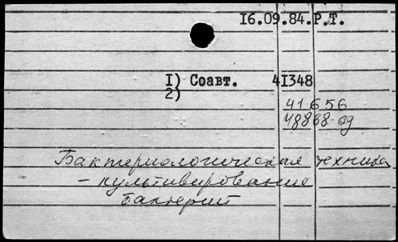 16.09.84.Р.Т.
I) Соавт. 41348
2)
41656
48868-од
Бактериологическая техника
- культивирование
бактерий